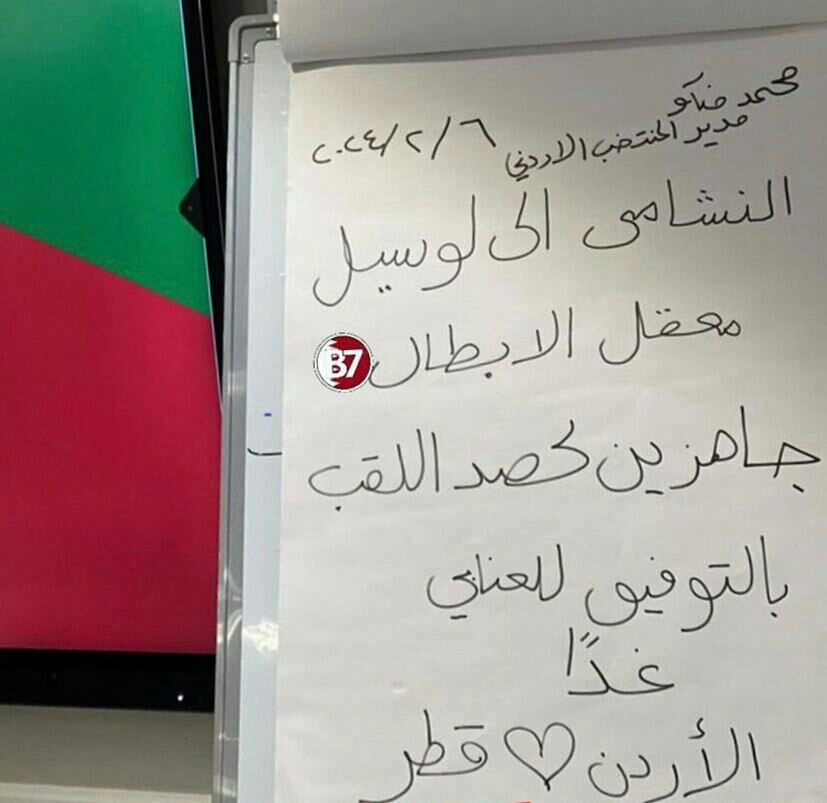 محمد ضانو
مدير المنتخب الاردني ٢٠٢٤/٢/٦
النشامى الى لوسيل
معقل الابطال
B7
جاهزين لحصد اللقب
بالتوفيق للعنابي
غدًا
الأردن ♡ قطر